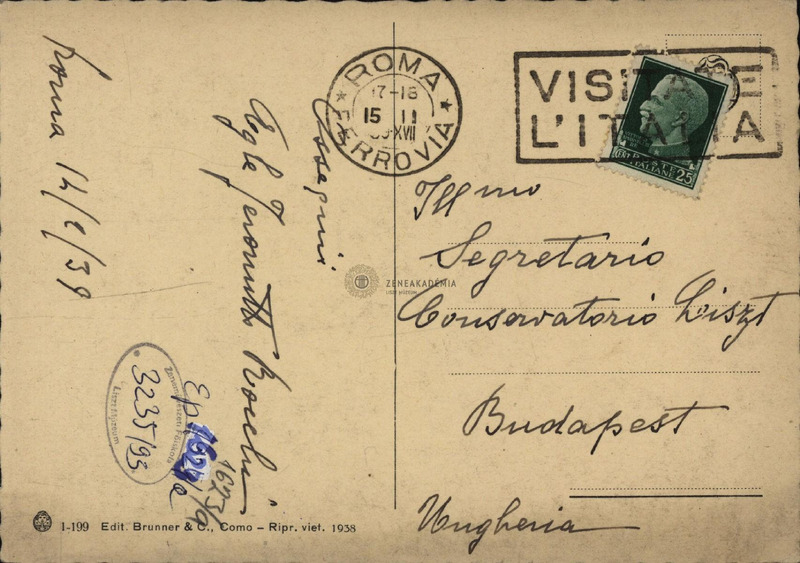 Roma 14/2/39
Ossequi
ROMA
17-18
15 II
XVII
FERROVIA
VISITATE
L'ITALIA
POSTE ITALIANE
CENT. 25
Ill mo
Segretario
Conservatorio Liszt
Budapest
Ungheria
ZENEAKADÉMIA
LISZT MÚZEUM
Zeneművészeti Főiskola
3235/93
Liszt Múzeum
1623/a
1-199 Edit. Brunner & C., Como – Ripr. viet. 1938